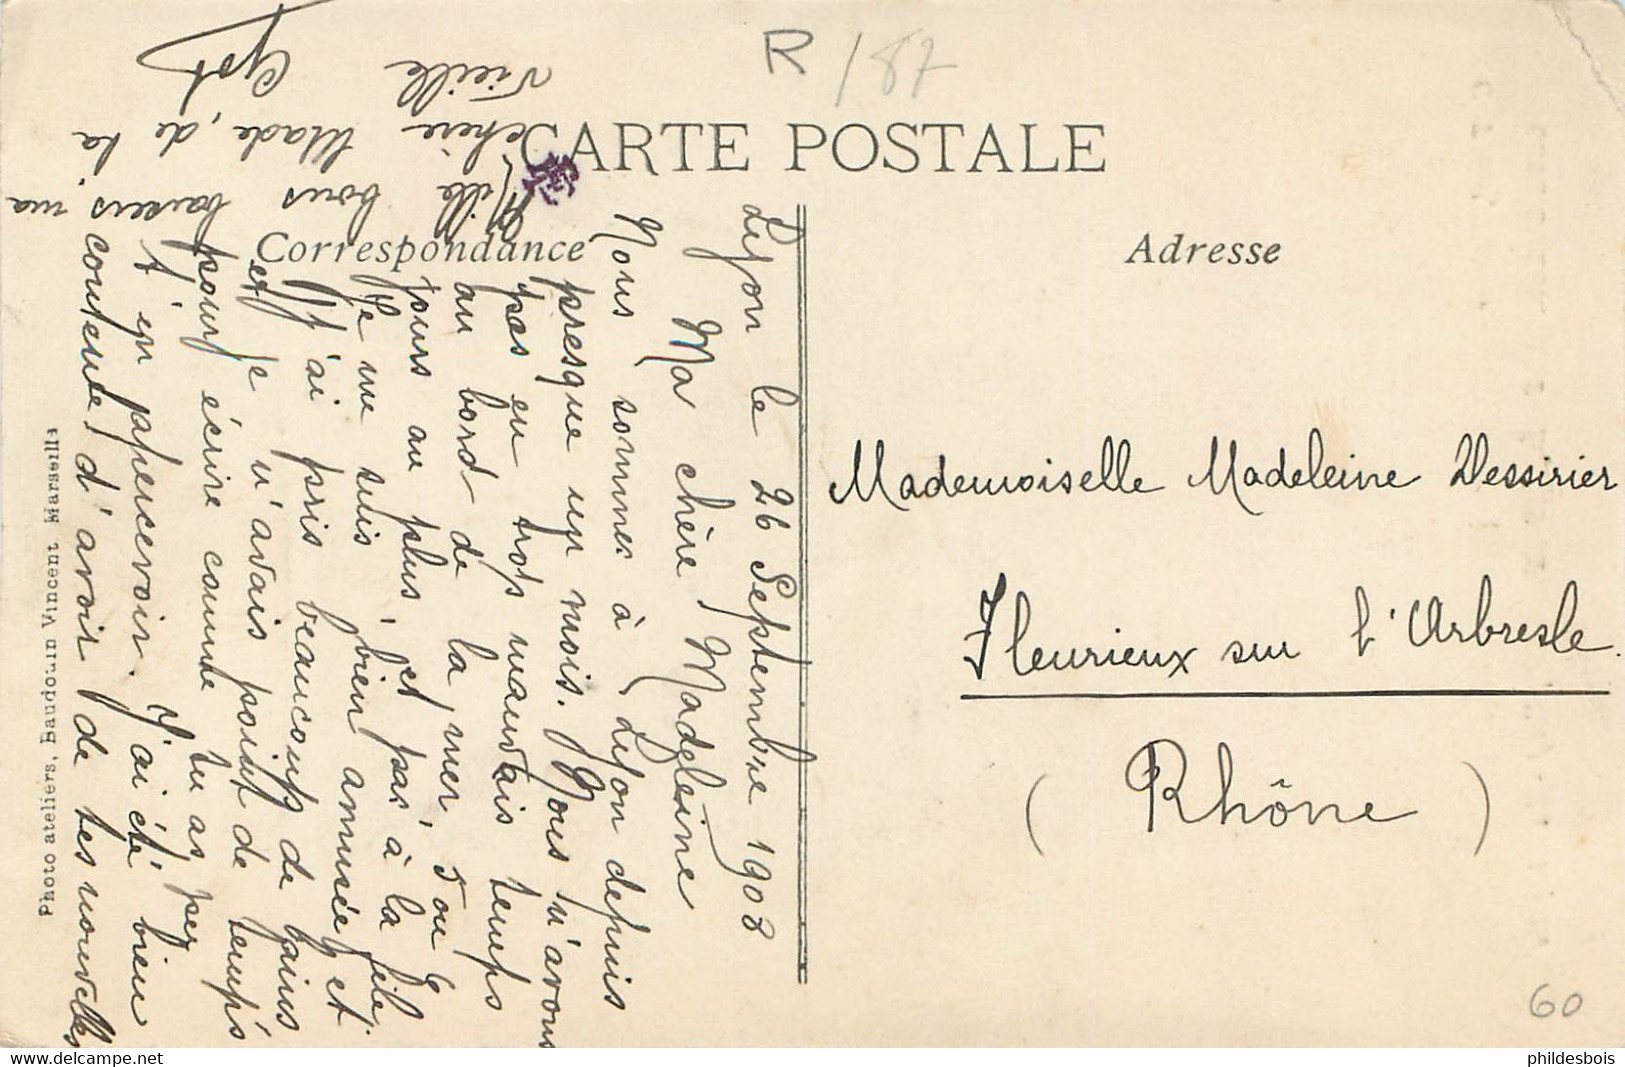 R /87
CARTE POSTALE
Correspondance
Adresse
Lyon le 26 Septembre 1908
Ma chère Madeleine
Nous sommes à Lyon depuis
presque un mois. Nous n'avons
pas eu trop mauvais temps
au bord de la mer, 5 ou 6
jours au plus, et pas à la file.
Je me suis bien amusée et
j'ai pris beaucoup de bains
et je n'avais point de temps
pour écrire comme tu as pu
t'en apercevoir. J'ai été bien
contente d'avoir de tes nouvelles
Mille bons baisers, ma
chère Made, de ta
vieille
Mademoiselle Madeleine Dessirier
Fleurieux sur l'Arbresle.
(Rhône)
Photo ateliers, Baudouin Vincent Marseille
60
phildesbois